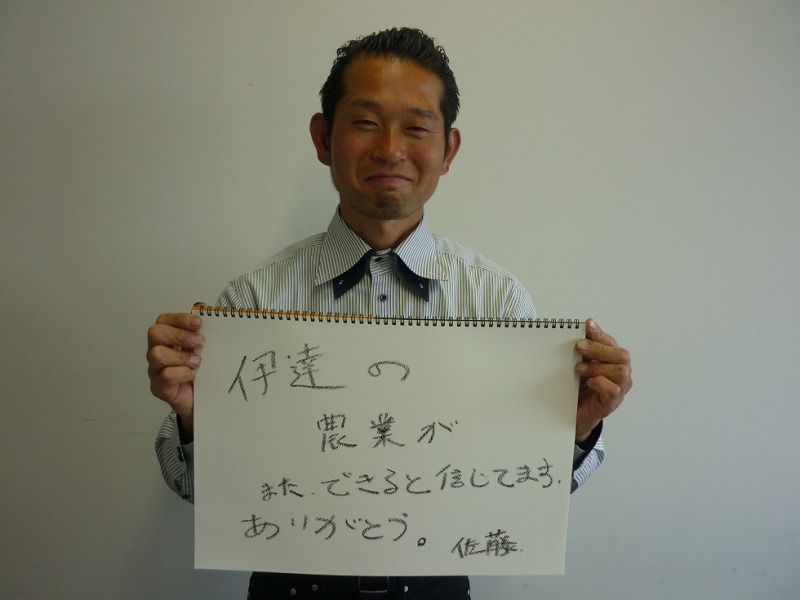 伊達の
農業が
また、できると信じてます。
ありがとう。
佐藤.